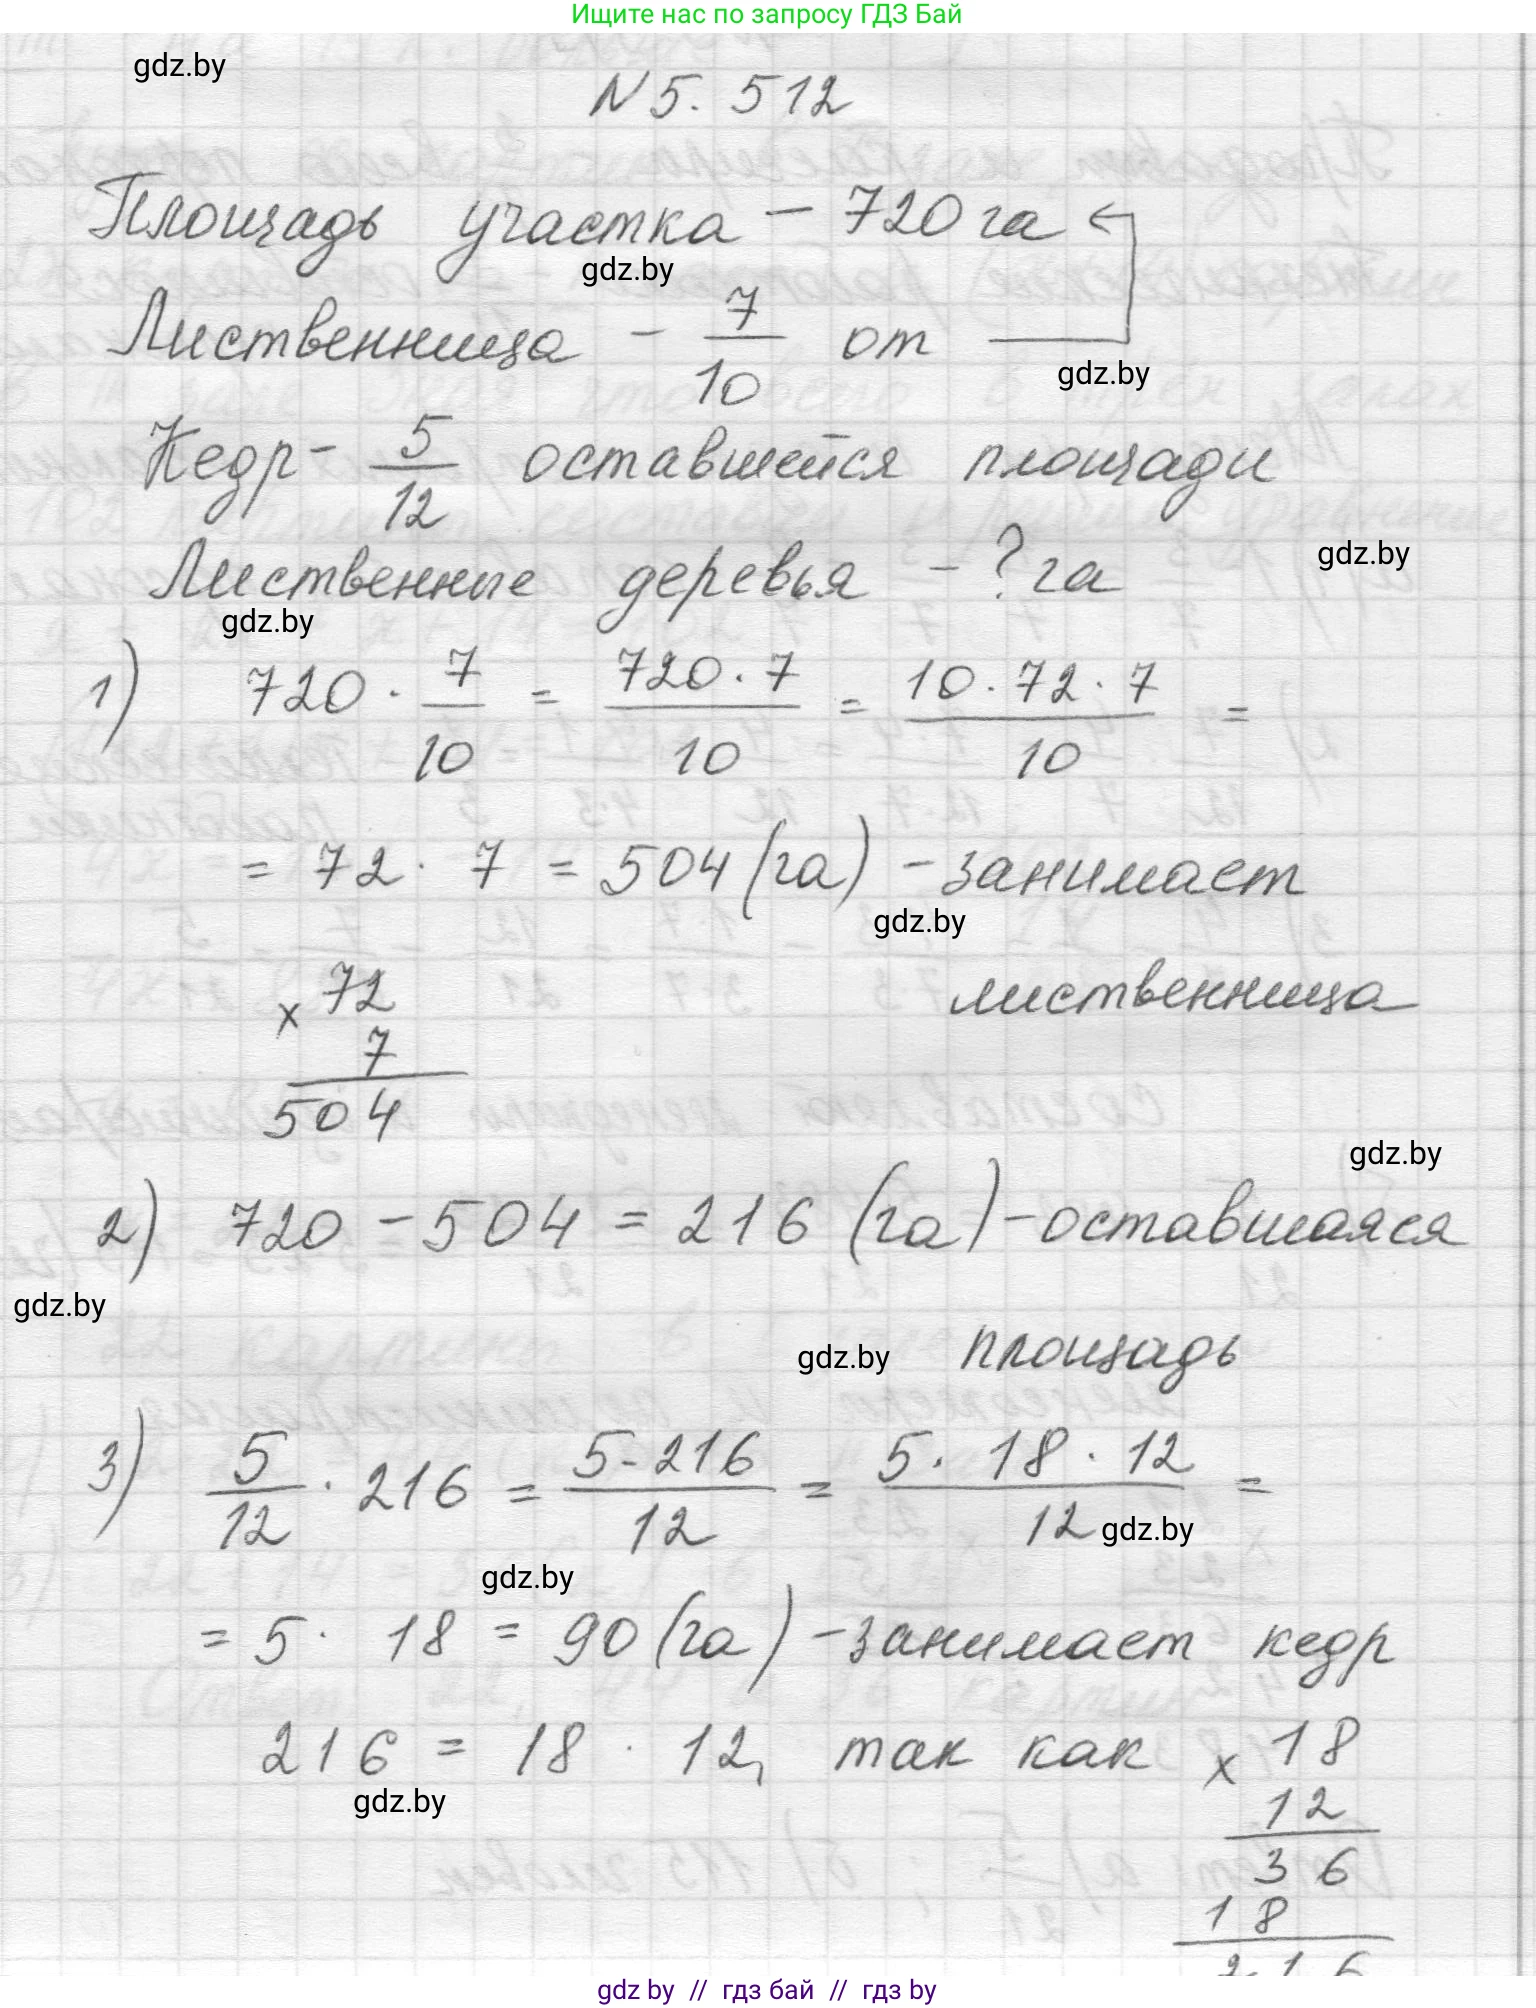 Ищите нас по запросу ГДЗ Бай
gdz.by
N 5. 512
Площадь участка – 720 га
gdz.by
Лиственница – 7/10 от
gdz.by
Кедр – 5/12 оставшейся площади
gdz.by
Лиственные деревья – ? га
gdz.by
1) 720 · 7/10 = 720 · 7/10 = 10 · 72 · 7/10 =
= 72 · 7 = 504 (га) – занимает
gdz.by
лиственница
× 72
7
504
gdz.by
2) 720 – 504 = 216 (га) – оставшаяся
gdz.by
площадь
gdz.by
3) 5/12 · 216 = 5 · 216/12 = 5 · 18 · 12/12 =
gdz.by
gdz.by
= 5 · 18 = 90 (га) – занимает кедр
216 = 18 · 12, так как × 18
gdz.by
12
36
18
216
gdz by // гдз бай // gdz by